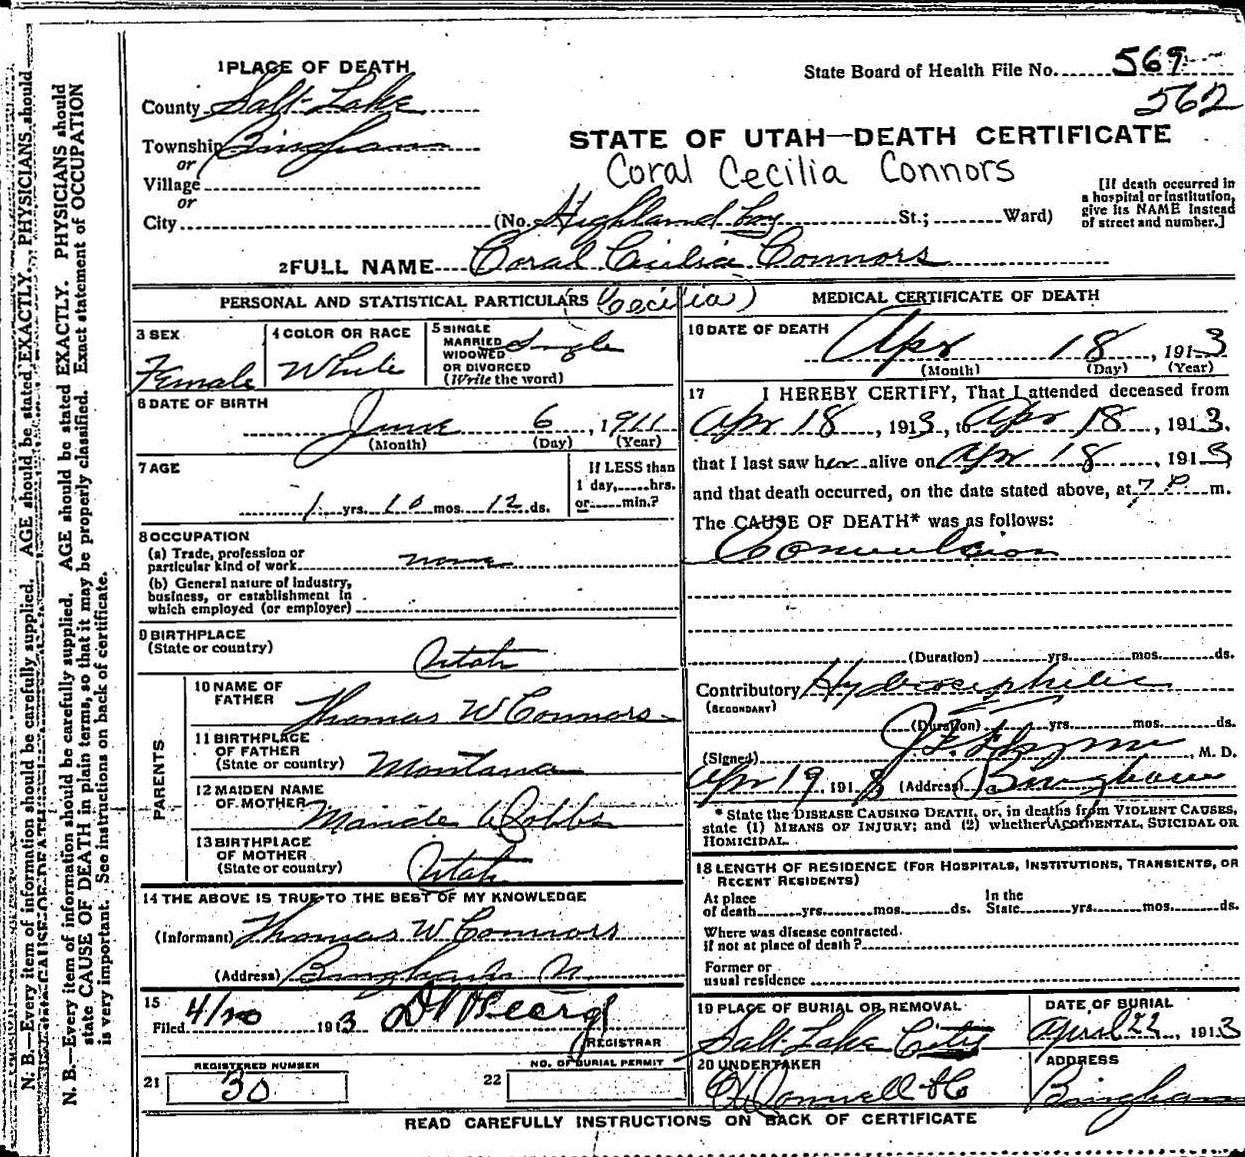 1 PLACE OF DEATH
State Board of Health File No. 569
562
County Salt Lake
Township Bingham
or
Village
or
City
STATE OF UTAH—DEATH CERTIFICATE
Coral Cecilia Connors
(No. Highland Boy St.; Ward)
[If death occurred in a hospital or institution, give its NAME instead of street and number.]
2 FULL NAME Coral Cicilia Connors
(Cecilia)
PERSONAL AND STATISTICAL PARTICULARS
3 SEX
Female
4 COLOR OR RACE
White
5 SINGLE
MARRIED
WIDOWED
OR DIVORCED
(Write the word)
Single
6 DATE OF BIRTH
June 6, 1911
(Month) (Day) (Year)
7 AGE
1 yrs. 10 mos. 12 ds.
If LESS than
1 day, hrs.
or min.?
8 OCCUPATION
(a) Trade, profession or
particular kind of work none
(b) General nature of industry,
business, or establishment in
which employed (or employer)
9 BIRTHPLACE
(State or country)
Utah
PARENTS
10 NAME OF
FATHER
Thomas W Connors
11 BIRTHPLACE
OF FATHER
(State or country)
Montana
12 MAIDEN NAME
OF MOTHER
13 BIRTHPLACE
OF MOTHER
(State or country)
Utah
14 THE ABOVE IS TRUE TO THE BEST OF MY KNOWLEDGE
(Informant) Thomas W Connors
(Address) Bingham
15
Filed 4/20 1913
REGISTRAR
REGISTERED NUMBER
21 30
NO. OF BURIAL PERMIT
22
MEDICAL CERTIFICATE OF DEATH
16 DATE OF DEATH
Apr 18, 1913
(Month) (Day) (Year)
17 I HEREBY CERTIFY, That I attended deceased from
Apr 18, 1913, to Apr 18, 1913,
that I last saw her alive on Apr 18, 1913
and that death occurred, on the date stated above, at 7 P m.
The CAUSE OF DEATH* was as follows:
Convulsion
(Duration) yrs. mos. ds.
Contributory
(SECONDARY)
(Duration) yrs. mos. ds.
(Signed) M. D.
Apr 19, 1913 (Address) Bingham
* State the DISEASE CAUSING DEATH, or, in deaths from VIOLENT CAUSES,
state (1) MEANS OF INJURY; and (2) whether ACCIDENTAL, SUICIDAL OR
HOMICIDAL.
18 LENGTH OF RESIDENCE (FOR HOSPITALS, INSTITUTIONS, TRANSIENTS, OR
RECENT RESIDENTS)
At place
of death yrs. mos. ds.
In the
State yrs. mos. ds.
Where was disease contracted.
if not at place of death?
Former or
usual residence
19 PLACE OF BURIAL OR REMOVAL
Salt Lake City
DATE OF BURIAL
April 22, 1913
20 UNDERTAKER
O'Donnell & Co
ADDRESS
Bingham
READ CAREFULLY INSTRUCTIONS ON BACK OF CERTIFICATE
N. B.—Every item of information should be carefully supplied. AGE should be stated EXACTLY. PHYSICIANS should
N. B.—Every item of information should be carefully supplied. AGE should be stated EXACTLY. PHYSICIANS should
state CAUSE OF DEATH in plain terms, so that it may be properly classified. Exact statement of OCCUPATION
is very important. See instructions on back of certificate.